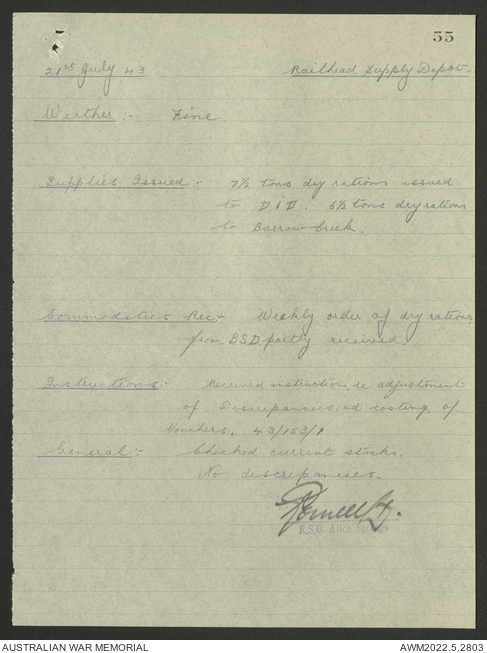 55
21st July 43 Railhead Supply Depot.
Weather :- Fine
Supplies Issued :- 7½ tons dry rations issued
to DID. 6½ tons dry rations
to Barrow Creek.
Commodities Rec :- Weekly order of dry rations
from BSD partly received.
Instructions :- Received instruction re adjustment
of Discrepancies and costing of
Vouchers. 43/153/1
General :- Checked current stocks.
No discrepancies.
R.S.O. Alice Springs
AUSTRALIAN WAR MEMORIAL AWM2022.5.2803